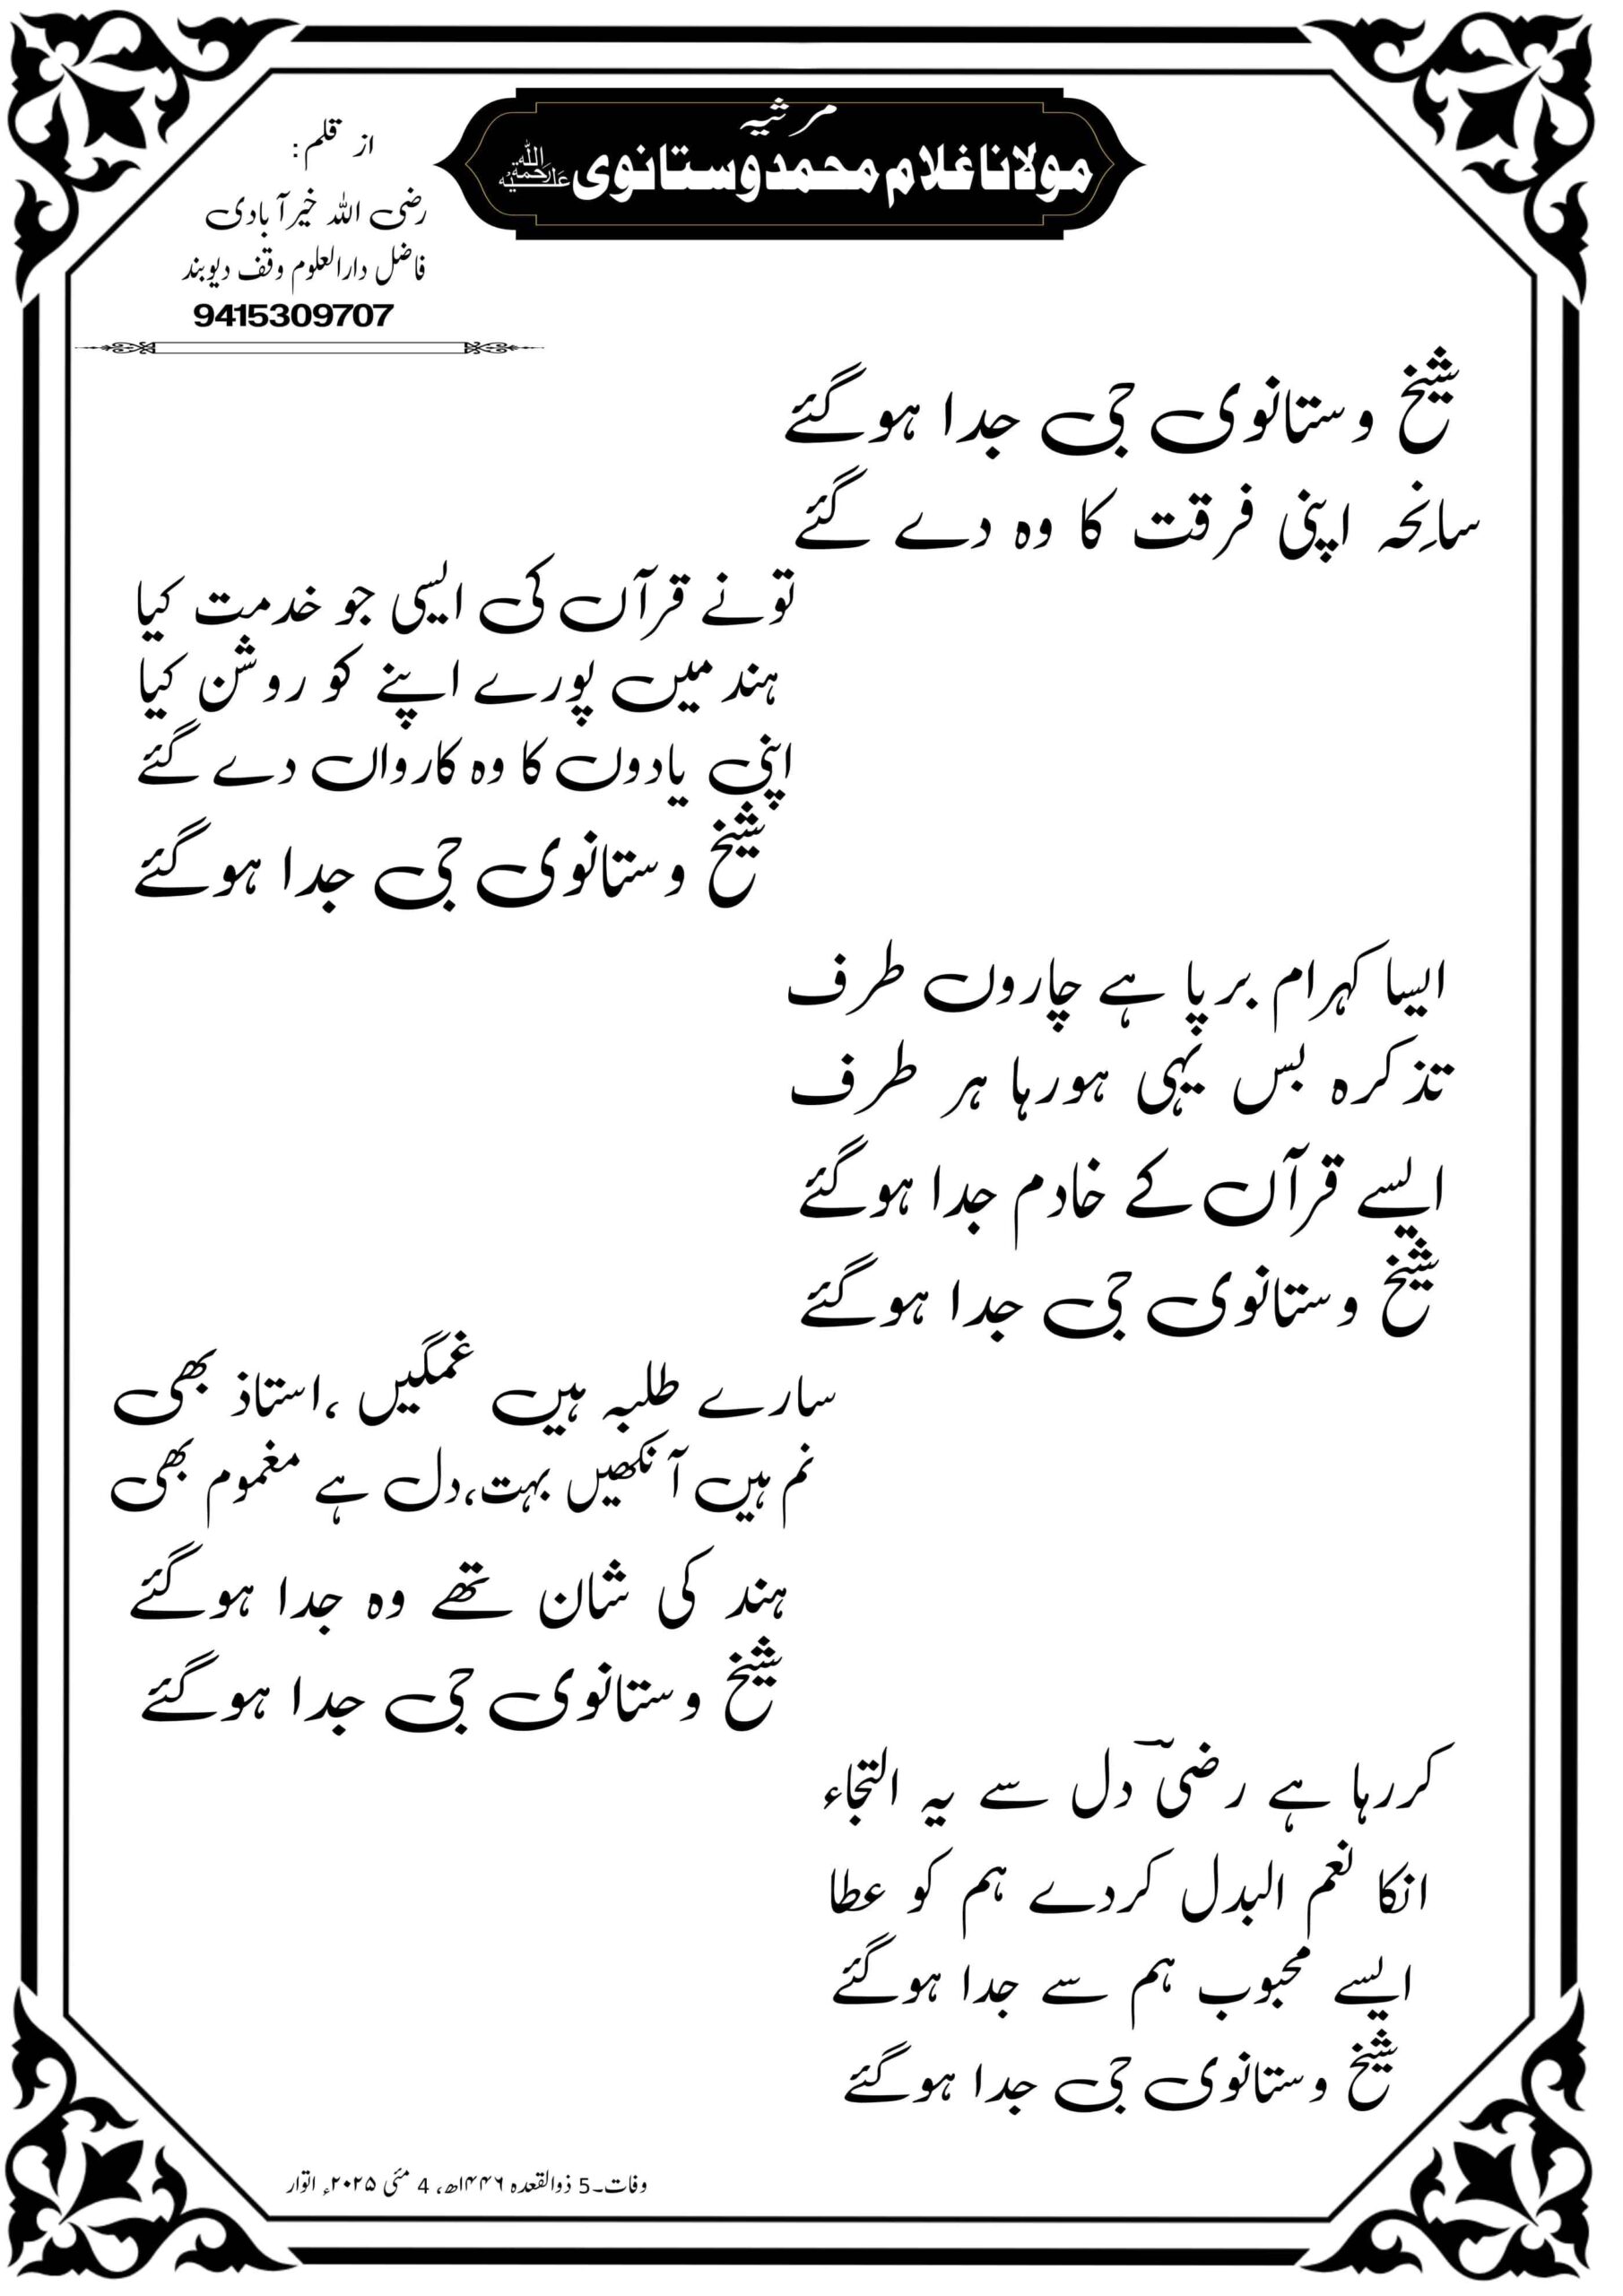 مرثیہ
مولانا غلام محمد وستانوی رحمۃ اللہ علیہ
از قلم:
رضی اللہ خیرآبادی
فاضل دارالعلوم وقف دیوبند
9415309707
شیخ وستانوی جی جدا ہوگئے
سانِحہ اپنی فرقت کا وہ دے گئے
تو نے قرآں کی ایسی جو خدمت کیا
ہند میں پورے اپنے کو روشن کیا
اپنی یادوں کا وہ کارواں دے گئے
شیخ وستانوی جی جدا ہوگئے
ایسا کہرام برپا ہے چاروں طرف
تذکرہ بس یہی ہورہا ہر طرف
ایسے قرآں کے خادم جدا ہوگئے
شیخ وستانوی جی جدا ہوگئے
سارے طلبہ ہیں غمگیں ،استاذ بھی
نم ہیں آنکھیں بہت،دل ہے مغموم بھی
ہند کی شان تھے وہ جدا ہوگئے
شیخ وستانوی جی جدا ہوگئے
کررہا ہے رضیؔ دل سے یہ التجاء
انکا نعم البدل کردے ہم کو عطا
ایسے محبوب ہم سے جدا ہوگئے
شیخ وستانوی جی جدا ہوگئے
وفات۔5 ذوالقعدہ ۱۴۴۶ھ، 4 مئی ۲۰۲۵ء اتوار